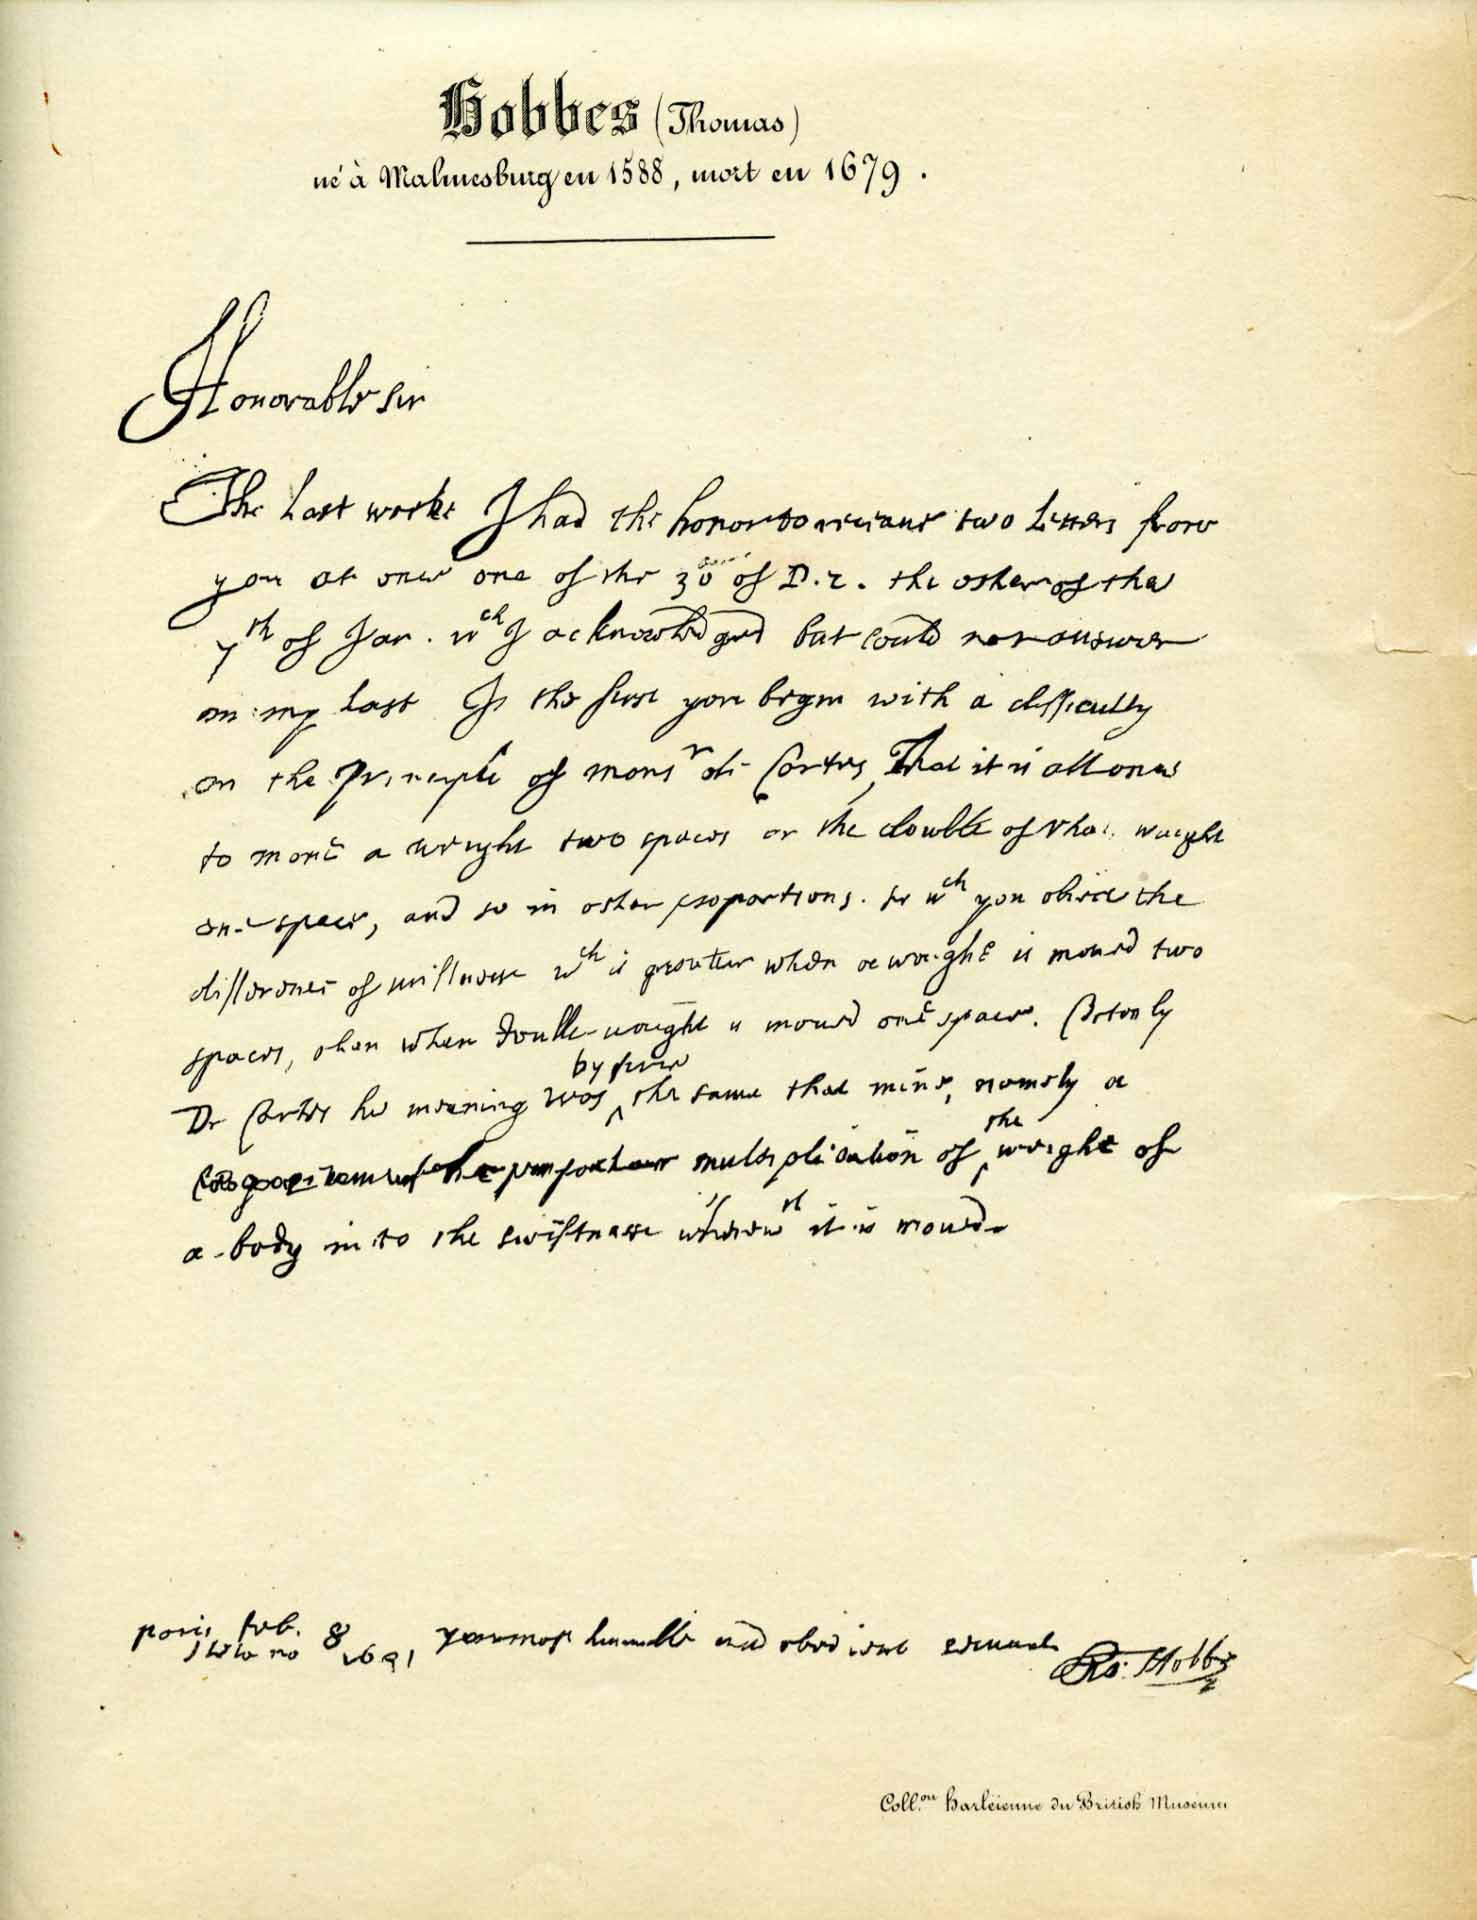 Hobbes (Thomas)
né à Malmesburg en 1588, mort en 1679.
Honorable Sir
The last weeke I had the honor to receaue two letters from
you at once one of the 30 of De. the other of the
7th of Jan. wch I acknowledged but could not answer
in my last In the first you begin with a difficulty
on the Principle of monsr des Cartes, That it is all one
to moue a weight two spaces or the double of that weight
one space, and so in other proportions. to wch you obiect the
difference of swiftnesse wch is greater when a weight is moued two
spaces, then when double weight is moued one space. Certenly
by
De Cartes his meaning was the same that mine, namely a
the
multiplication of weight of
a body in to the swiftnesse wherewth it is moued.
Paris feb. 8 your most humble and obedient seruant
stilo no 1641 Tho: Hobbes
Coll.on harléienne du British Museum